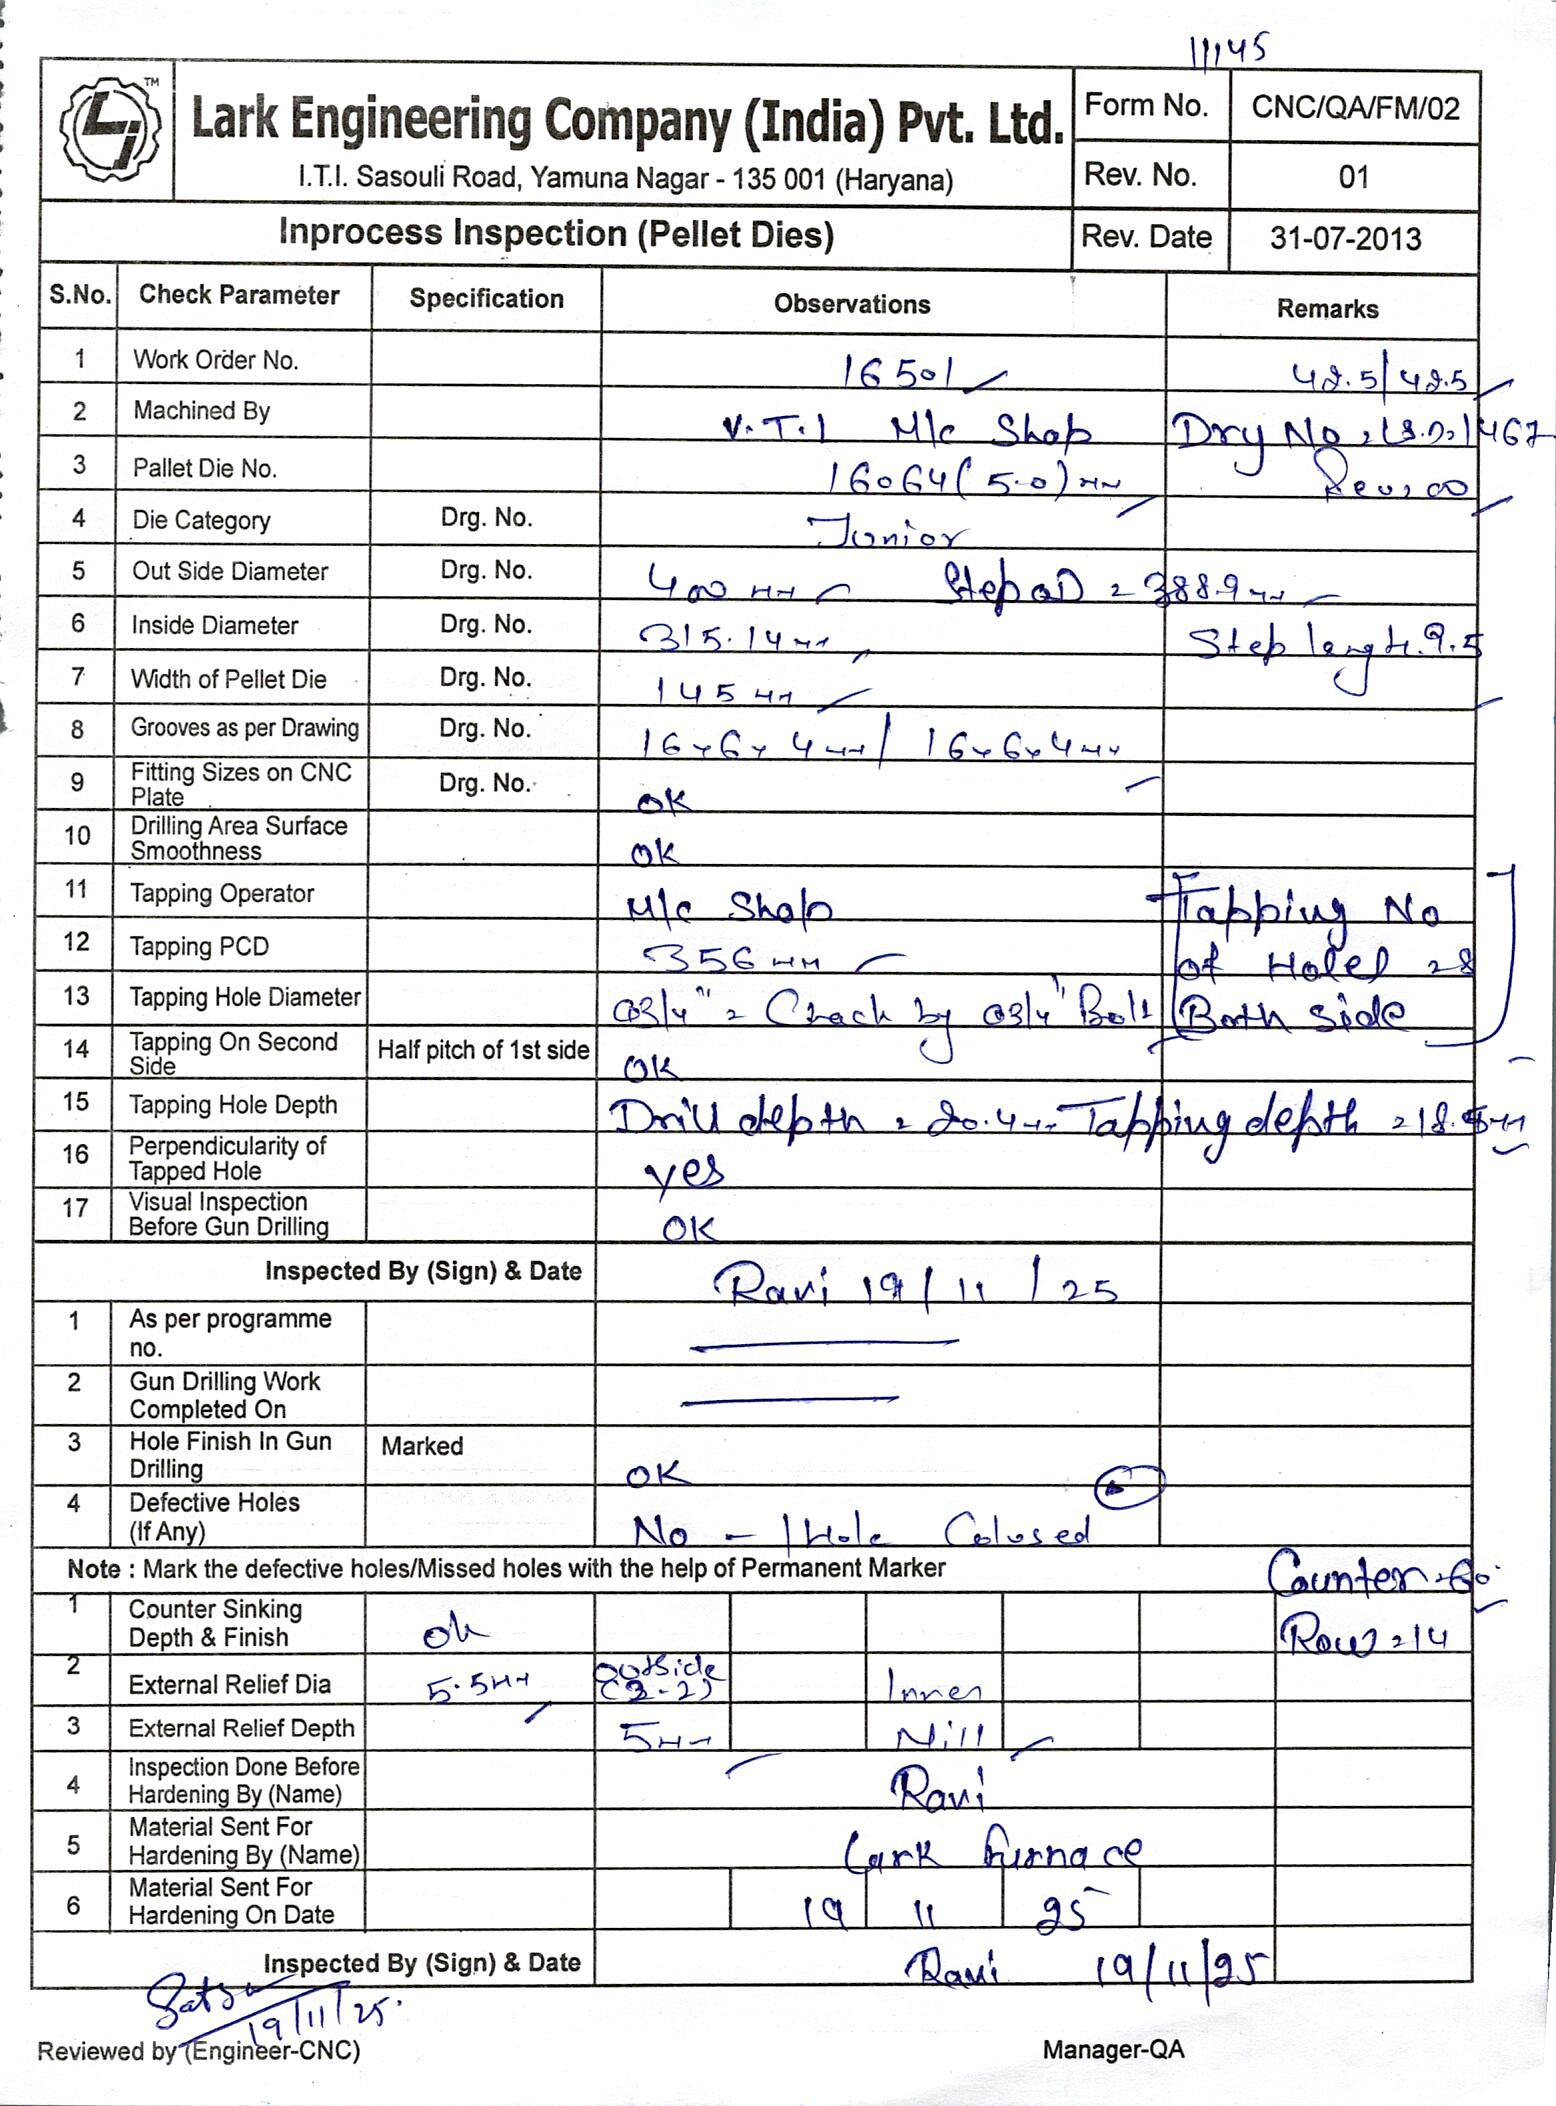 11145
TM
Lark Engineering Company (India) Pvt. Ltd.
I.T.I. Sasouli Road, Yamuna Nagar - 135 001 (Haryana)
Form No. CNC/QA/FM/02
Rev. No. 01
Inprocess Inspection (Pellet Dies) Rev. Date 31-07-2013
S.No. Check Parameter Specification Observations Remarks
1 Work Order No. 16501 42.5/42.5
2 Machined By V.T.I M/c Shop Drg No
3 Pallet Die No. 16064 (5.0) mm Rev, 00
4 Die Category Drg. No. Junior
5 Out Side Diameter Drg. No. 400 mm Step OD = 388.9 mm
6 Inside Diameter Drg. No. 315.14 mm Step length. 9.5
7 Width of Pellet Die Drg. No. 145 mm
8 Grooves as per Drawing Drg. No. 16x6x4 mm/ 16x6x4 mm
9 Fitting Sizes on CNC Plate Drg. No. OK
10 Drilling Area Surface Smoothness OK
11 Tapping Operator M/c Shop Tapping No
12 Tapping PCD 356 mm of Holel = 8
13 Tapping Hole Diameter 03/4" = Chack by 03/4" Bolt Both side
14 Tapping On Second Side Half pitch of 1st side OK
15 Tapping Hole Depth Drill depth = 20.4 mm Tapping depth = 18.5 mm
16 Perpendicularity of Tapped Hole yes
17 Visual Inspection Before Gun Drilling OK
Inspected By (Sign) & Date Ravi 19/11/25
1 As per programme no.
2 Gun Drilling Work Completed On
3 Hole Finish In Gun Drilling Marked OK
4 Defective Holes (If Any) No - 1 Hole Colused
Note : Mark the defective holes/Missed holes with the help of Permanent Marker Counter
1 Counter Sinking Depth & Finish ok Row = 14
2 External Relief Dia 5.5 mm outside (2-2) Inner
3 External Relief Depth 5 mm Nill
4 Inspection Done Before Hardening By (Name) Ravi
5 Material Sent For Hardening By (Name) Lark furnace
6 Material Sent For Hardening On Date 19 11 25
Inspected By (Sign) & Date Ravi 19/11/25
19/11/25.
Reviewed by (Engineer-CNC) Manager-QA